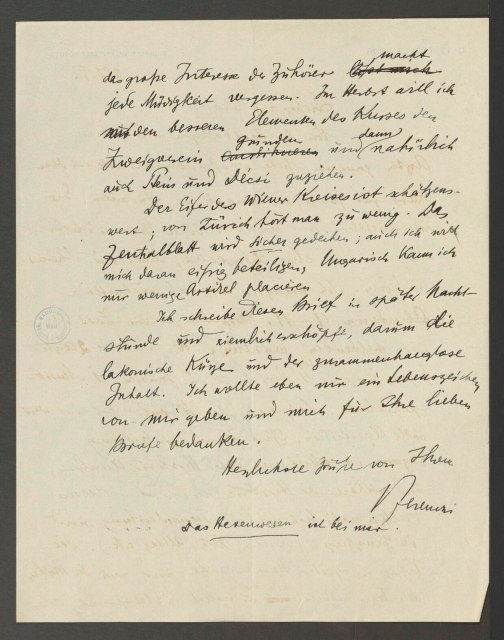 macht
das große Interesse der Zuhörer lässt mich
jede Müdigkeit vergessen. Im Herbst will ich
mit den besseren Elementen des Kurses den
gründen dann
Zweigverein constituieren und natürlich
auch Stein und Décsi zuziehen.
Der Eifer des Wiener Kreises ist schätzens-
wert; von Zürich hört man zu wenig. Das
Zentralblatt wird sicher gedeihen; auch ich will
mich daran eifrig beteiligen, Ungarisch kann ich
nur wenige Artikel placieren
Ich schreibe diesen Brief in später Nacht-
stunde und ziemlich erschöpft, darum die
lakonische Kürze und der zusammenhanglose
Inhalt. Ich wollte eben nur ein Lebenszeichen
von mir geben und mich für Ihre lieben
Briefe bedanken.
Herzlichste Grüße von Ihrem
Ferenczi
Das Hexenwesen ist bei mir.